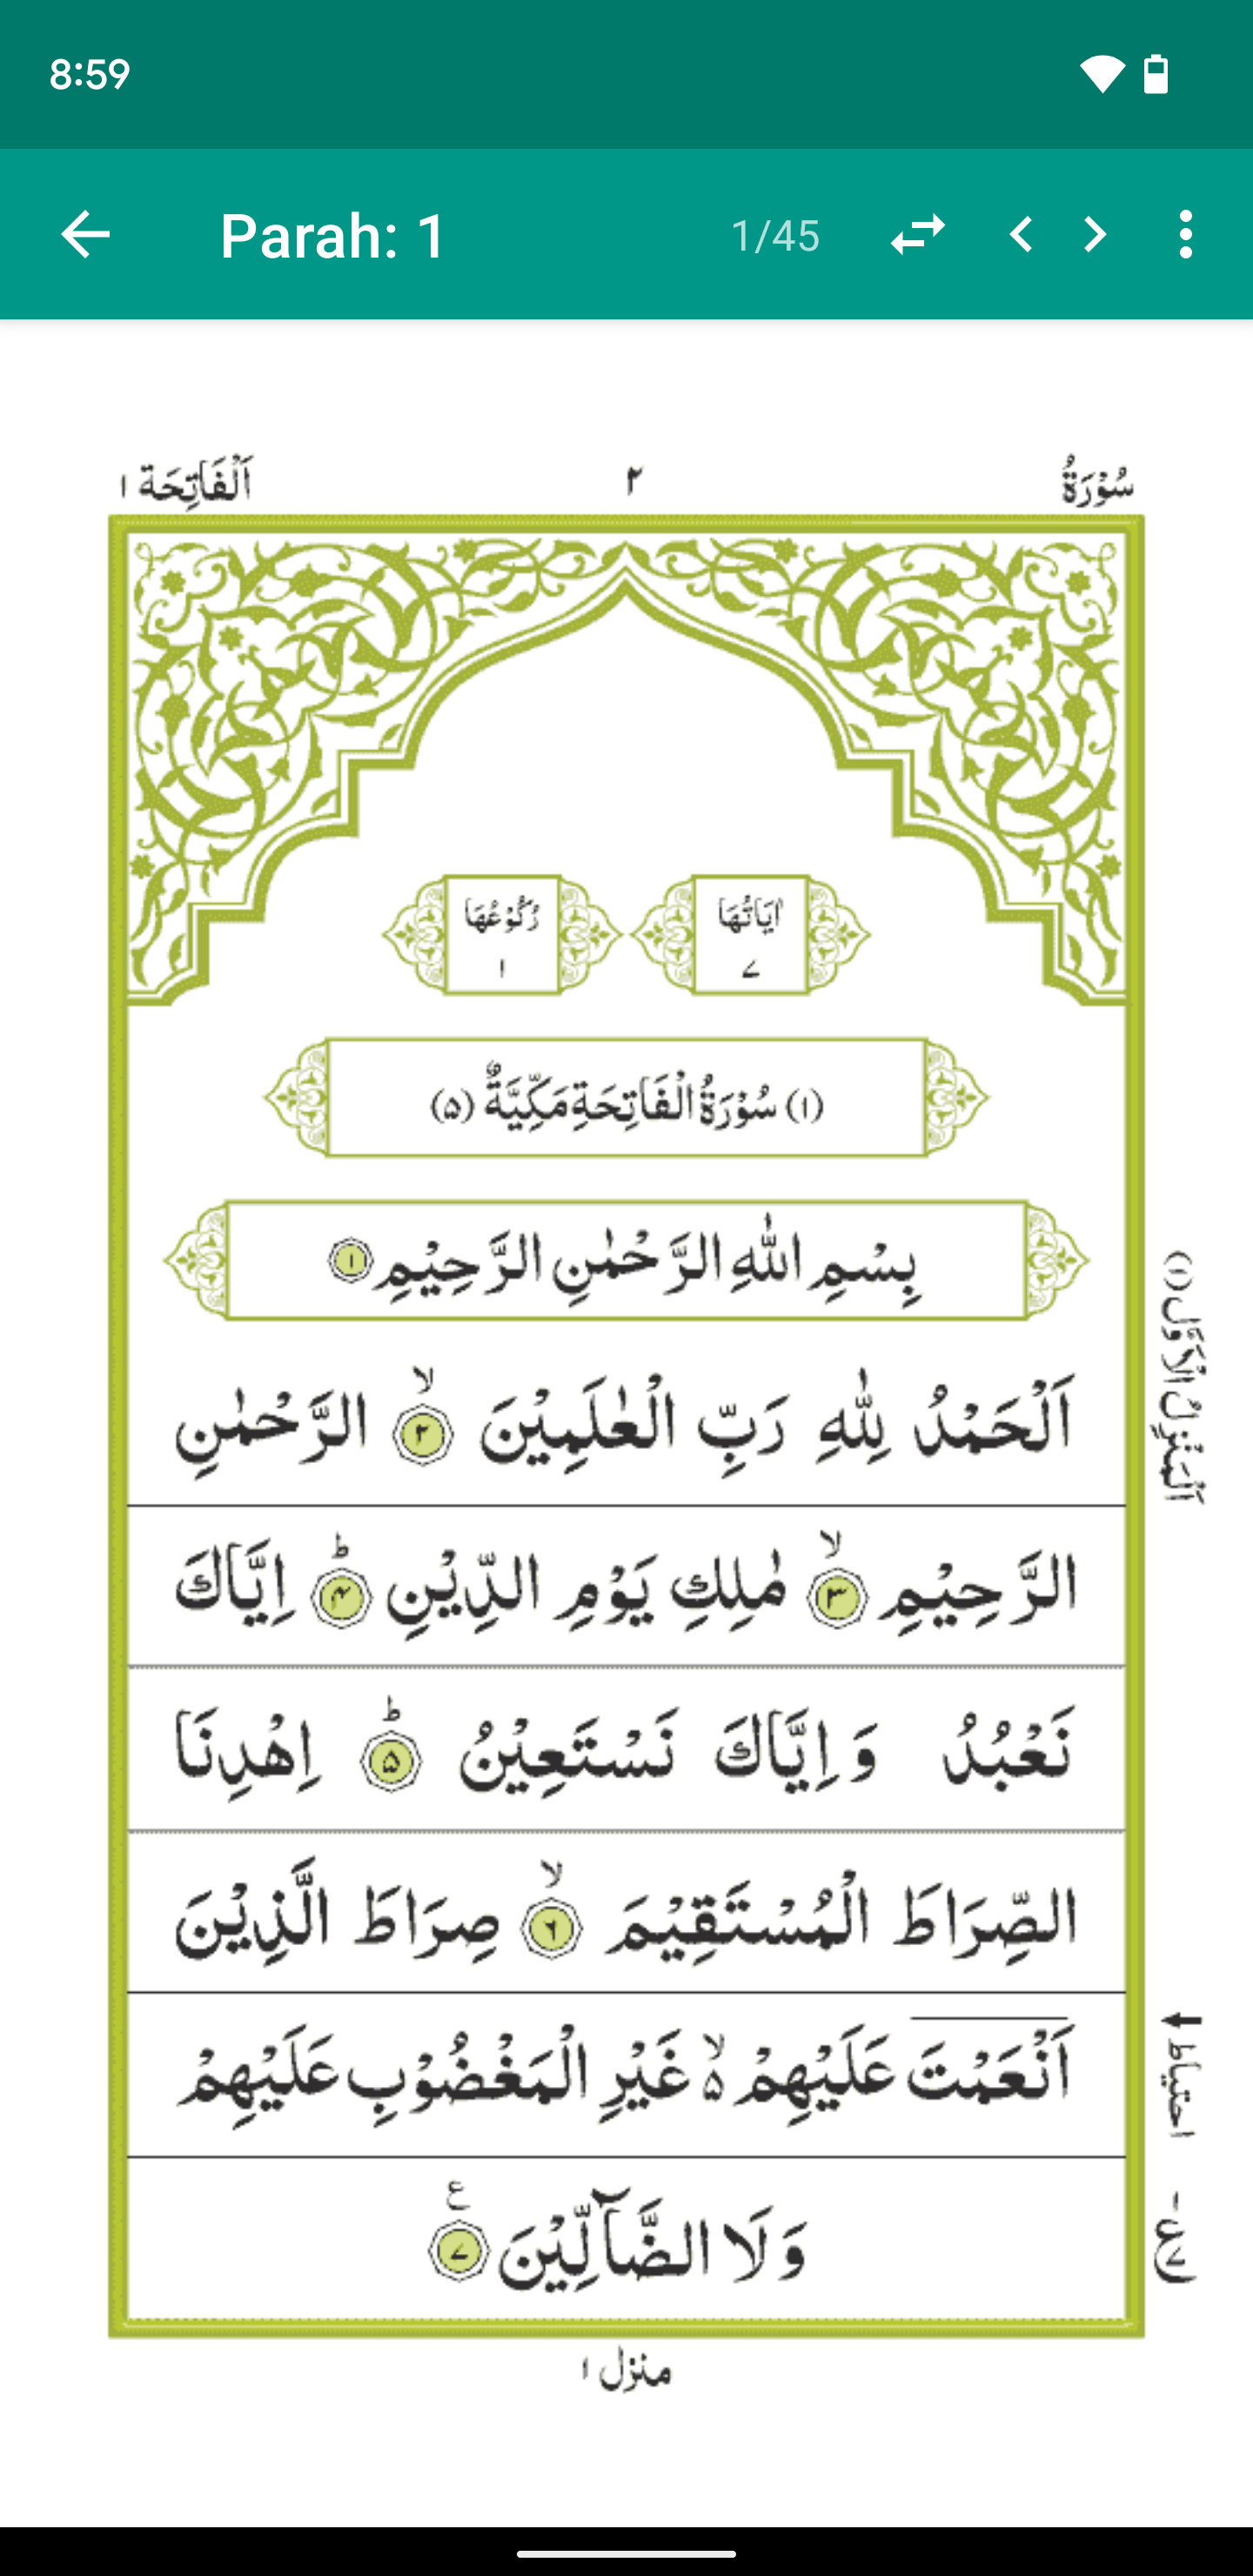 8:59
Parah: 1
1/45
سُوْرَةُ ٢ اَلْفَاتِحَة ١
اٰيَاتُهَا ٧
رُكُوْعُهَا ١
(١) سُوْرَةُ الْفَاتِحَةِ مَكِّيَّةٌ (۵)
بِسْمِ اللّٰهِ الرَّحْمٰنِ الرَّحِيْمِ ١
اَلْحَمْدُ لِلّٰهِ رَبِّ الْعٰلَمِيْنَ ۙ ٢ الرَّحْمٰنِ
الرَّحِيْمِ ۙ ٣ مٰلِكِ يَوْمِ الدِّيْنِ ؕ ۴ اِيَّاكَ
نَعْبُدُ وَ اِيَّاكَ نَسْتَعِيْنُ ؕ ۵ اِهْدِنَا
الصِّرَاطَ الْمُسْتَقِيْمَ ۙ ٦ صِرَاطَ الَّذِيْنَ
اَنْعَمْتَ عَلَيْهِمْ ۙ ۵ غَيْرِ الْمَغْضُوْبِ عَلَيْهِمْ
وَلَا الضَّآلِّيْنَ ع ٧
اَلْمَنْزِلُ الْاَوَّل (١)
احتیاط
ع ٧
منزل ١